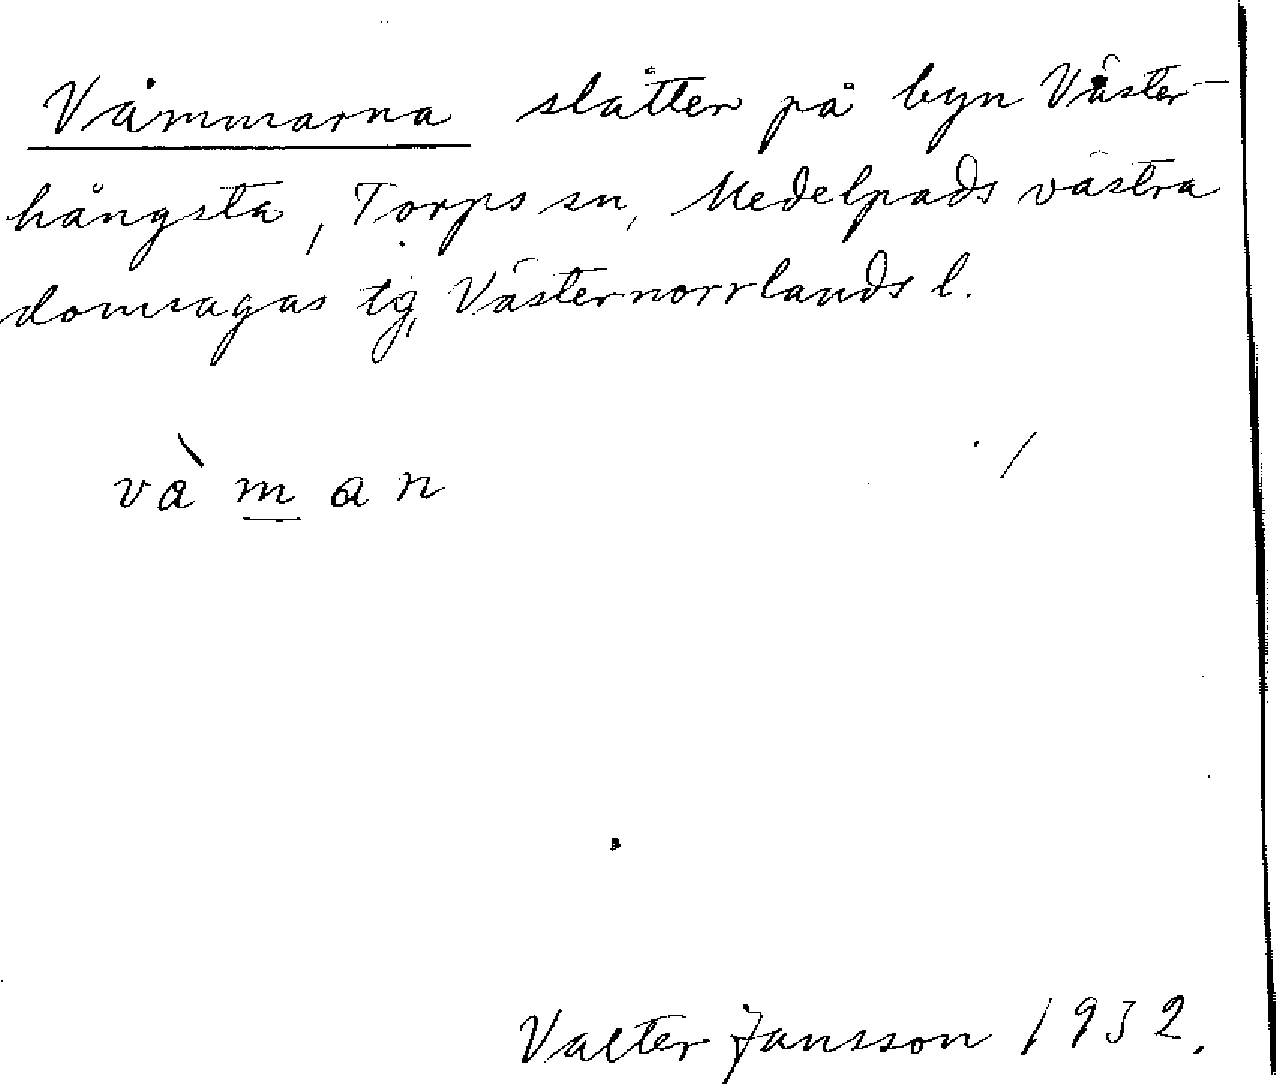 Våmmarna slåtter på byn Väster-
hångsta, Torps sn, Medelpads västra
domsagas tg, Västernorrlands l.
và m a n
Valter Jansson 1932.